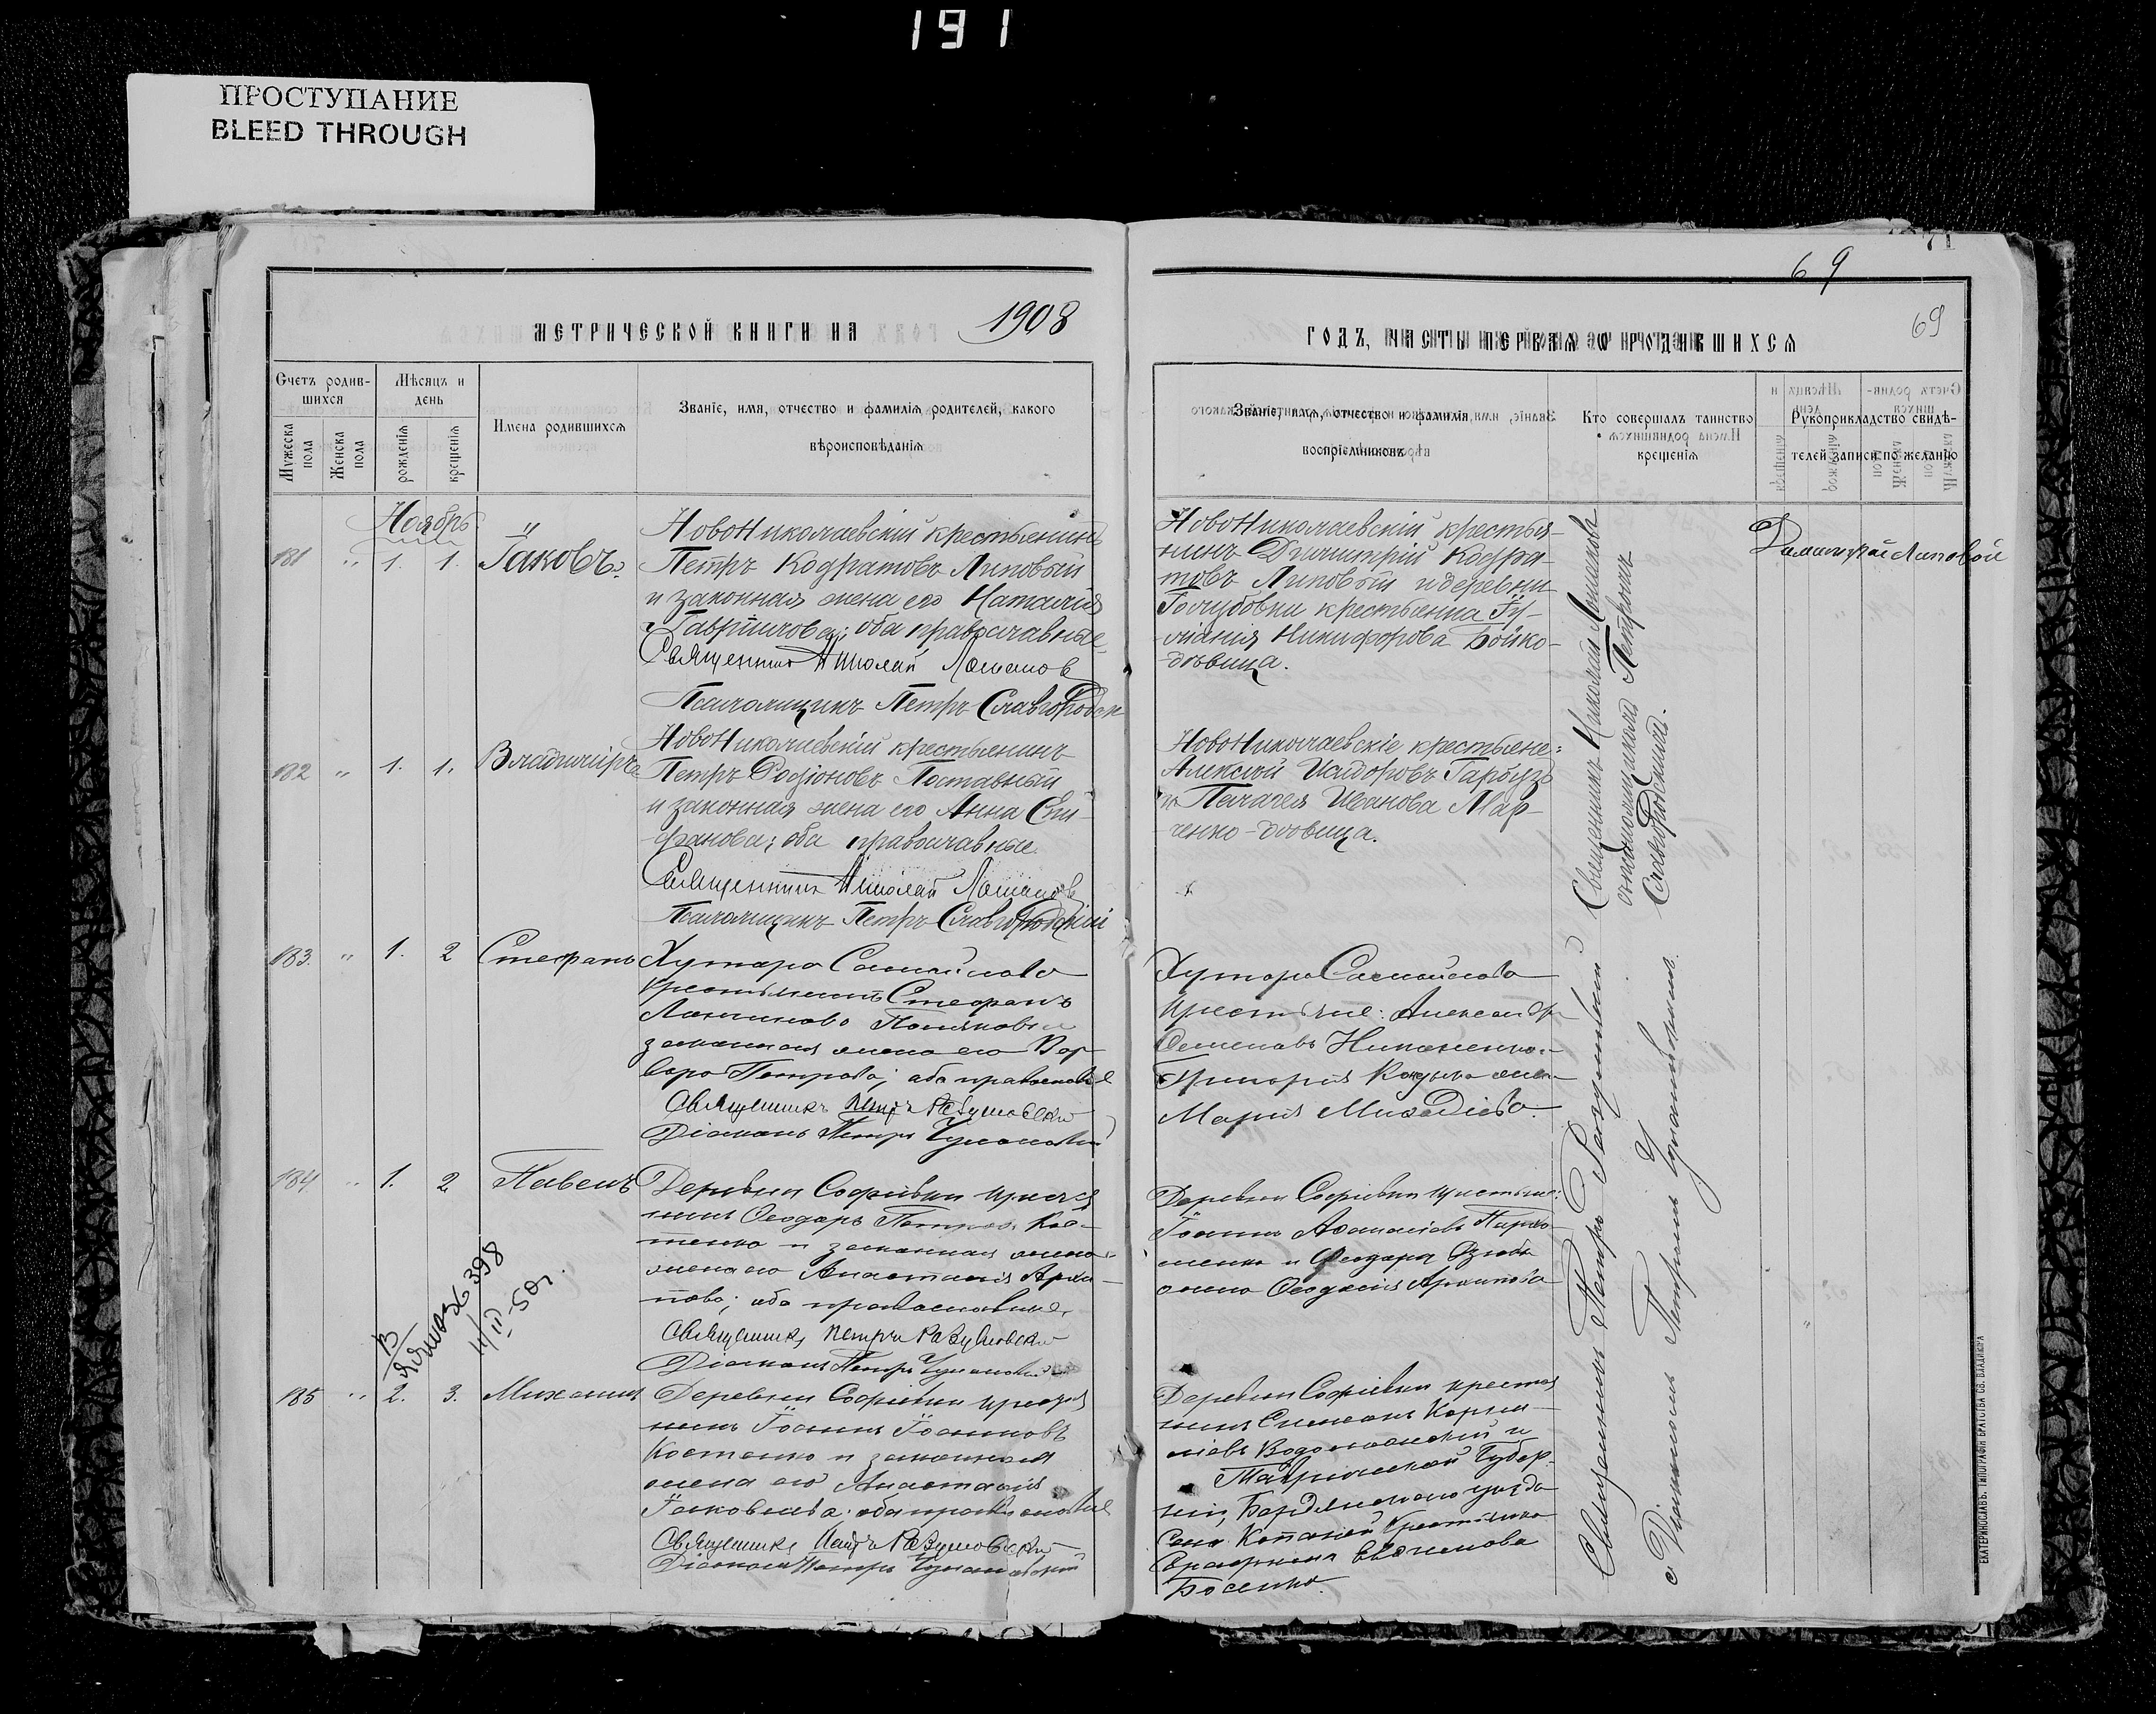 191
ПРОСТУПАНИЕ
BLEED THROUGH
69
69
МЕТРИЧЕСКОЙ КНИГИ НА 1908
ГОДЪ, ЧАСТЬ ПЕРВАЯ О РОДИВШИХСЯ
Счетъ родив-
шихся
Мужеска пола
Женска пола
Мѣсяцъ и
день
рожденія
крещенія
Имена родившихся
Званіе, имя, отчество и фамилія родителей, какого
вѣроисповѣданія
Званіе, имя, отчество и фамилія
воспріемниковъ
Кто совершалъ таинство
крещенія
Рукоприкладство свидѣ-
телей записи по желанію
Ноябрь
181 " 1. 1. Іаковъ.
НовоНиколаевскій крестьянинъ
Петръ Кодратовъ Липовый
и законная жена его Наталія
Гавріилова; оба православные
Священникъ Николай Лошаков
Псаломщикъ Петръ Славгородск
НовоНиколаевскій крестья-
нинъ Димитрій Кодра-
товъ Липовый и деревни
Голубовки крестьянка Іу-
ліанія Никифорова Бойко-
дѣвица.
Священникъ Николай Лошаковъ
съ псаломщикомъ Петромъ
Славгородскимъ.
Липовой
182 " 1. 1. Владиміръ
НовоНиколаевскій крестьянинъ
Петръ Родіоновъ Поставный
и законная жена его Анна
фанова; оба православные.
Священникъ Николай Лошаков
Псаломщикъ Петръ Славгородскій
НовоНиколаевскіе крестьяне:
Алексій Исидоровъ Гарбузъ
и Пелагея Иванова Мар-
ченко-дѣвица.
183. " 1. 2 Стефанъ
Хутора Самойлова
крестьянинъ Стефанъ
Поляковъ и
законная жена его Вар-
вара Петрова; оба православные
Священникъ Петръ Разумовскій
Діаконъ Петръ
Хутора Самойлова
крестьяне: Александръ
Семеновъ Никоненко
Григорія жена
Марія
Священникъ Петръ Разумовскій
съ Діакономъ Петромъ
184 " 1. 2 Павелъ
Деревни Софіевки крестья
нинъ Ѳеодоръ Петровъ Кос-
тенко и законная жена
жена его Анастасія Архи-
пова; оба православные,
Священникъ Петръ Разумовскій
Діаконъ Петръ
Деревни Софіевки крестьяне:
Іоаннъ Аѳанасіевъ Пархо-
менко и Ѳеодора Дзюбы
жена Ѳеодосія Архипова
36398
185 " 2. 3. Михаилъ
Деревни Софіевки крестья
нинъ Іоаннъ Іоанновъ
Костенко и законная
жена его Анастасія
Іаковлева; оба православные
Священникъ Петръ Разумовскій
Діаконъ Петръ
Деревни Софіевки крестья
нинъ Симеонъ Корни-
ліевъ и
Таврической Губер-
ніи, Бердянскаго уѣзда
Села крестьянка
Евѳимова
Босенко.
ЕКАТЕРИНОСЛАВЪ. ТИПОГРАФІЯ БРАТСТВА СВ. ВЛАДИМІРА